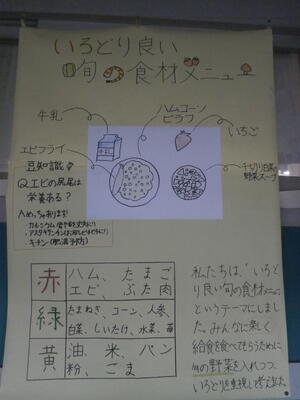 いろどり良い
旬の食材メニュー
牛乳
ハムコーン
ピラフ
いちご
エビフライ
千切り白菜の
野菜スープ
豆知識
Q.エビの尻尾は
栄養ある?
カルシウム
キチン
赤
ハム、たまご
エビ、ぶた肉
緑
たまねぎ、コーン、人参、
白菜、しいたけ、水菜、苺
黄
油、米、パン
粉、ごま
私たちは、「いろど
り良い旬の食材メニュー」
というテーマにしまし
た。みんなに楽しく
給食を食べてもらうために
旬の野菜を入れつつ、
いろどりを重視して考えました。